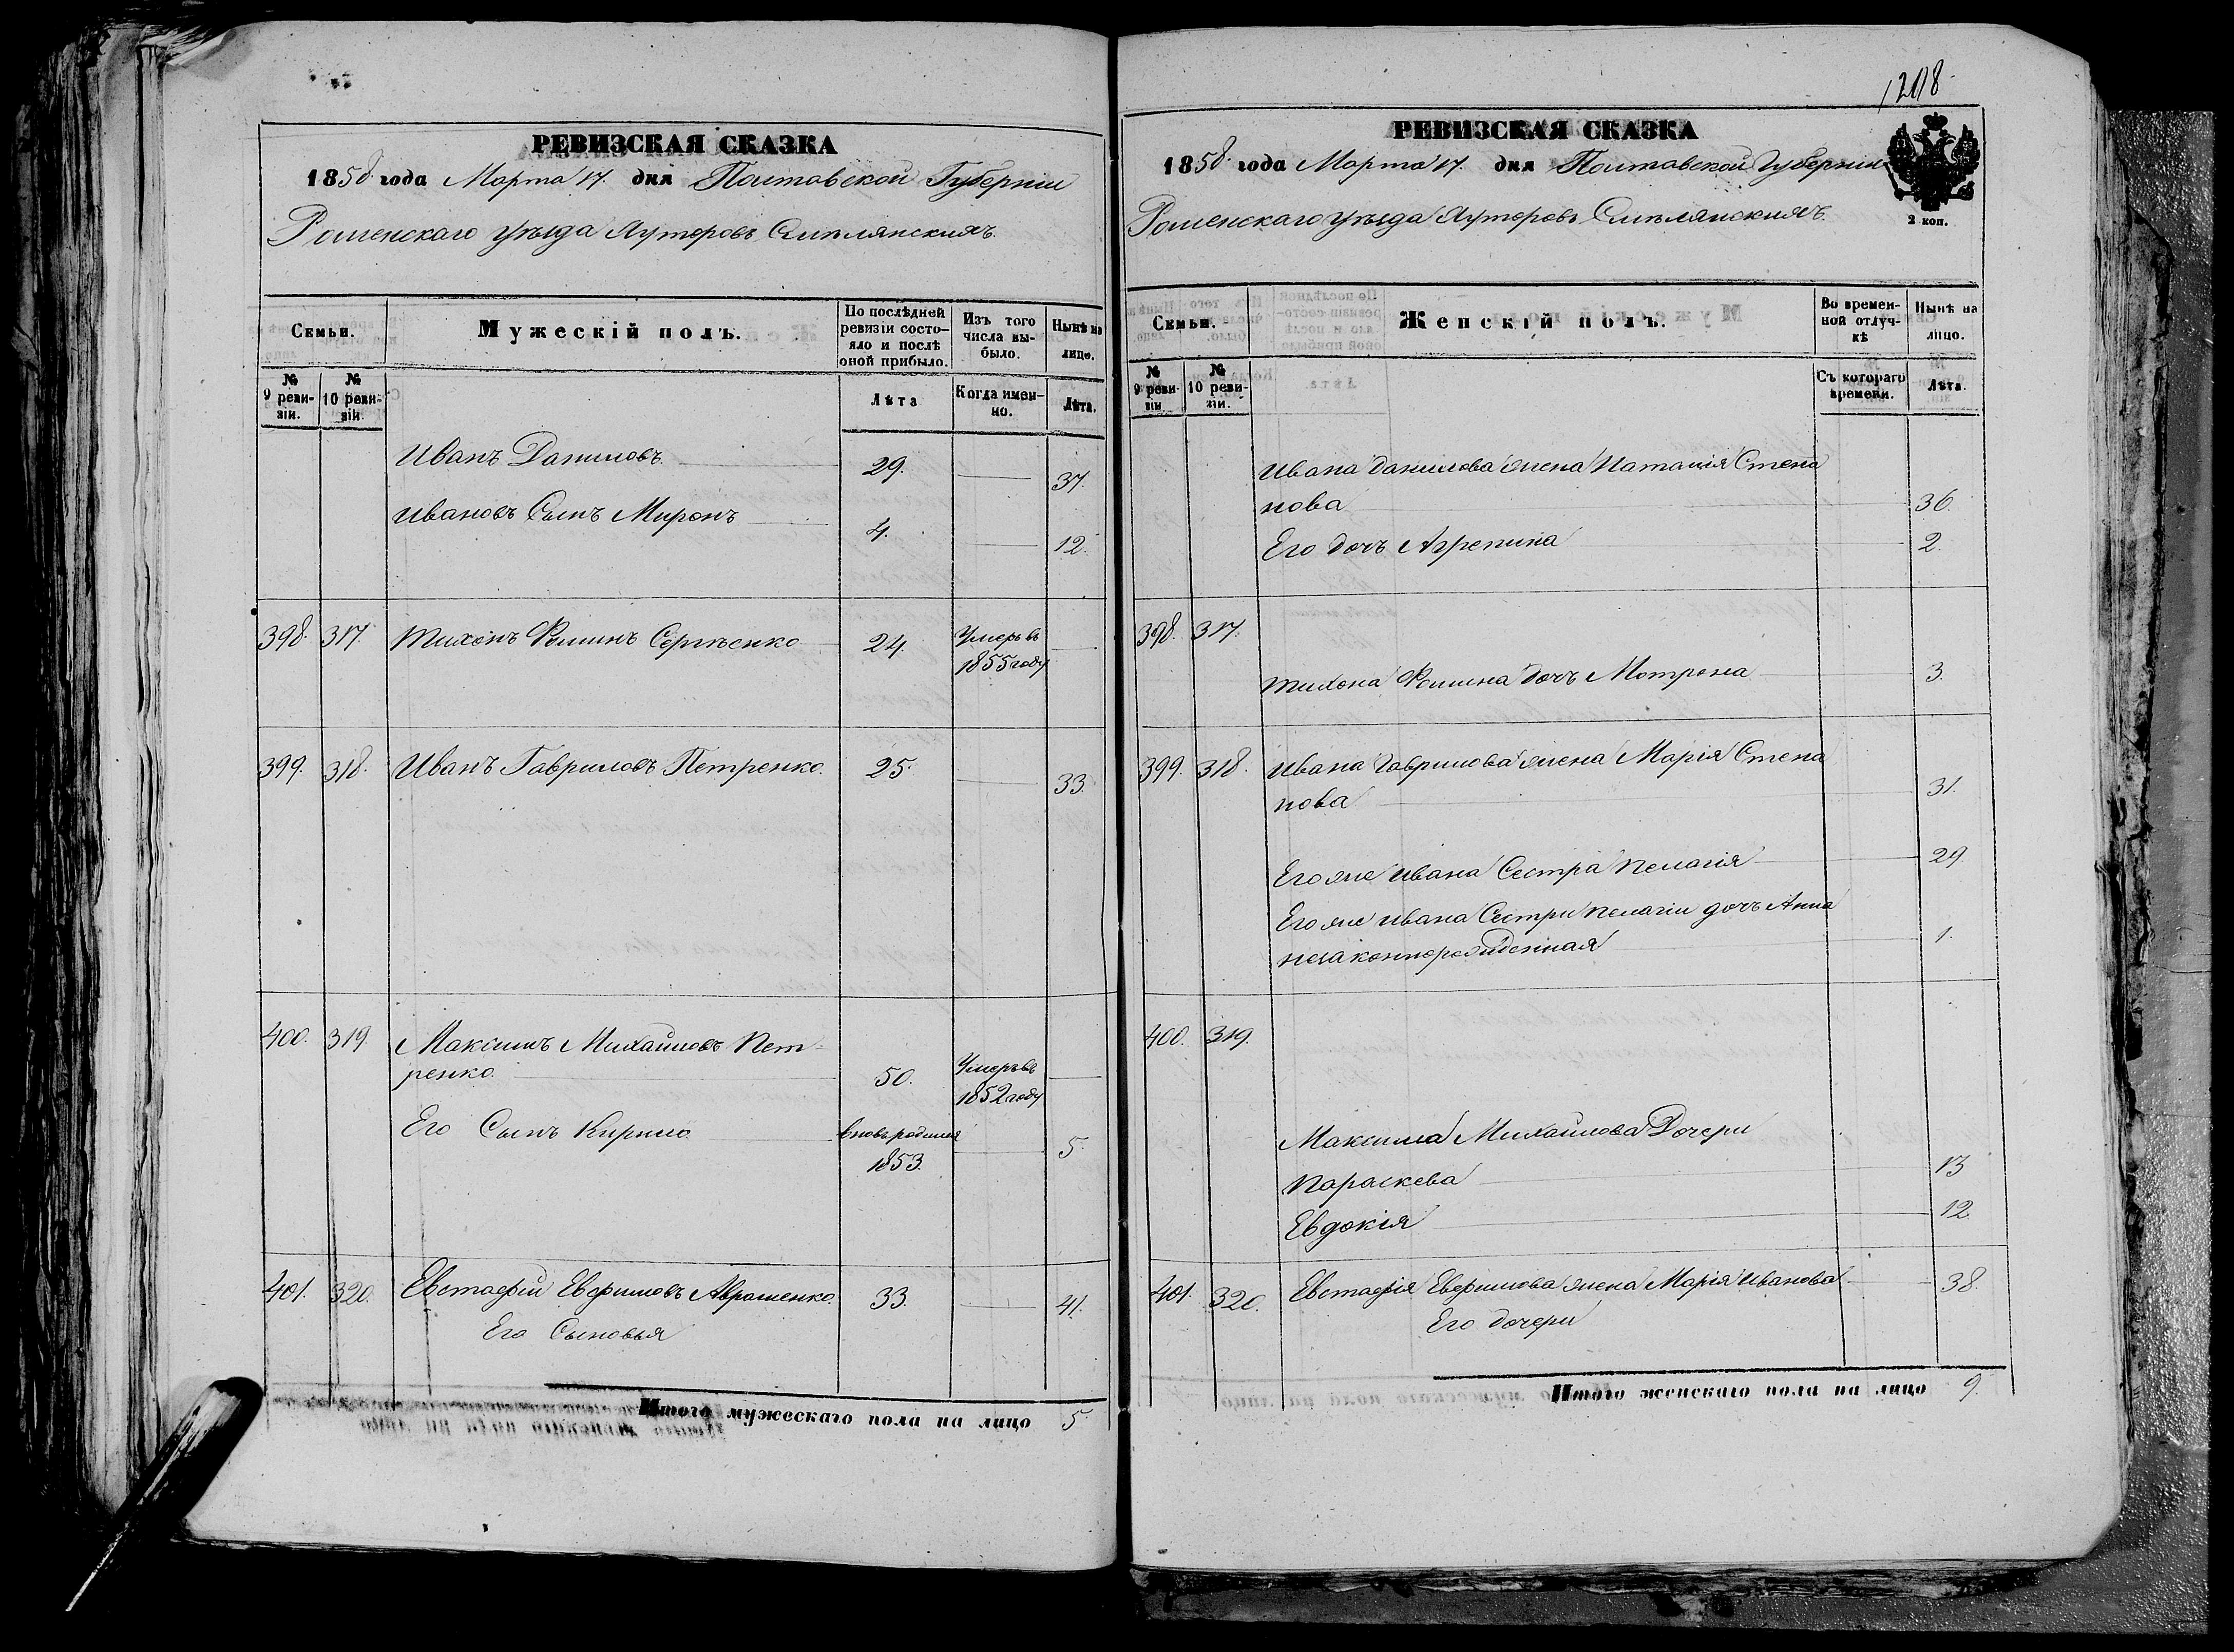 РЕВИЗСКАЯ СКАЗКА
1858 года Марта 17. дня Полтавской Губерніи
Роменскаго уѣзда Хуторовъ Смѣлянскихъ.
Семьи.
Мужескій полъ.
По послѣдней ревизіи состояло и послѣ оной прибыло.
Изъ того числа выбыло.
Нынѣ на лицо.
№ 9 ревизіи.
№ 10 ревизіи.
Лѣта
Когда именно.
Лѣта.
Иванъ Даниловъ. 29. 37.
Ивановъ Сынъ Миронъ 4. 12.
398. 317. Тихонъ Фоминъ Сергѣенко 24. Умеръ въ
1855 году
399. 318. Иванъ Гавриловъ Петренко. 25. 33.
400. 319. Максимъ Михайловъ Пет-
ренко. 50. Умеръ въ
1852 году
Его Сынъ Кирило вновь родился 5.
1853.
401. 320. Евстафій Евфимовъ Аврошенко. 33. 41.
Его Сыновья
Итого мужескаго пола на лицо 5.
1208
РЕВИЗСКАЯ СКАЗКА
1858 года Марта 17. дня Полтавской Губерніи
Роменскаго уѣзда Хуторовъ Смѣлянскихъ.
2 коп.
Семьи.
Женскій полъ.
Во временной отлучкѣ
Нынѣ на лицо.
№ 9 ревизіи
№ 10 ревизіи.
Съ котораго времени.
Лѣта.
Ивана Данилова жена Наталія Степа
нова 36.
Его дочь Агрепина 2.
398. 317.
Тихона Фомина дочь Мотрона 3.
399. 318. Ивана Гаврилова жена Марія Степа
нова 31.
Его же Ивана Сестра Пелагія 29
Его же Ивана Сестри Пелагіи дочь Анна
незаконнорожденная 1.
400. 319.
Максима Михайлова Дочери
Параскева 13
Евдокія 12.
401. 320. Евстафія Евфимова жена Марія Иванова 38.
Его дочери
Итого женскаго пола на лицо 9.